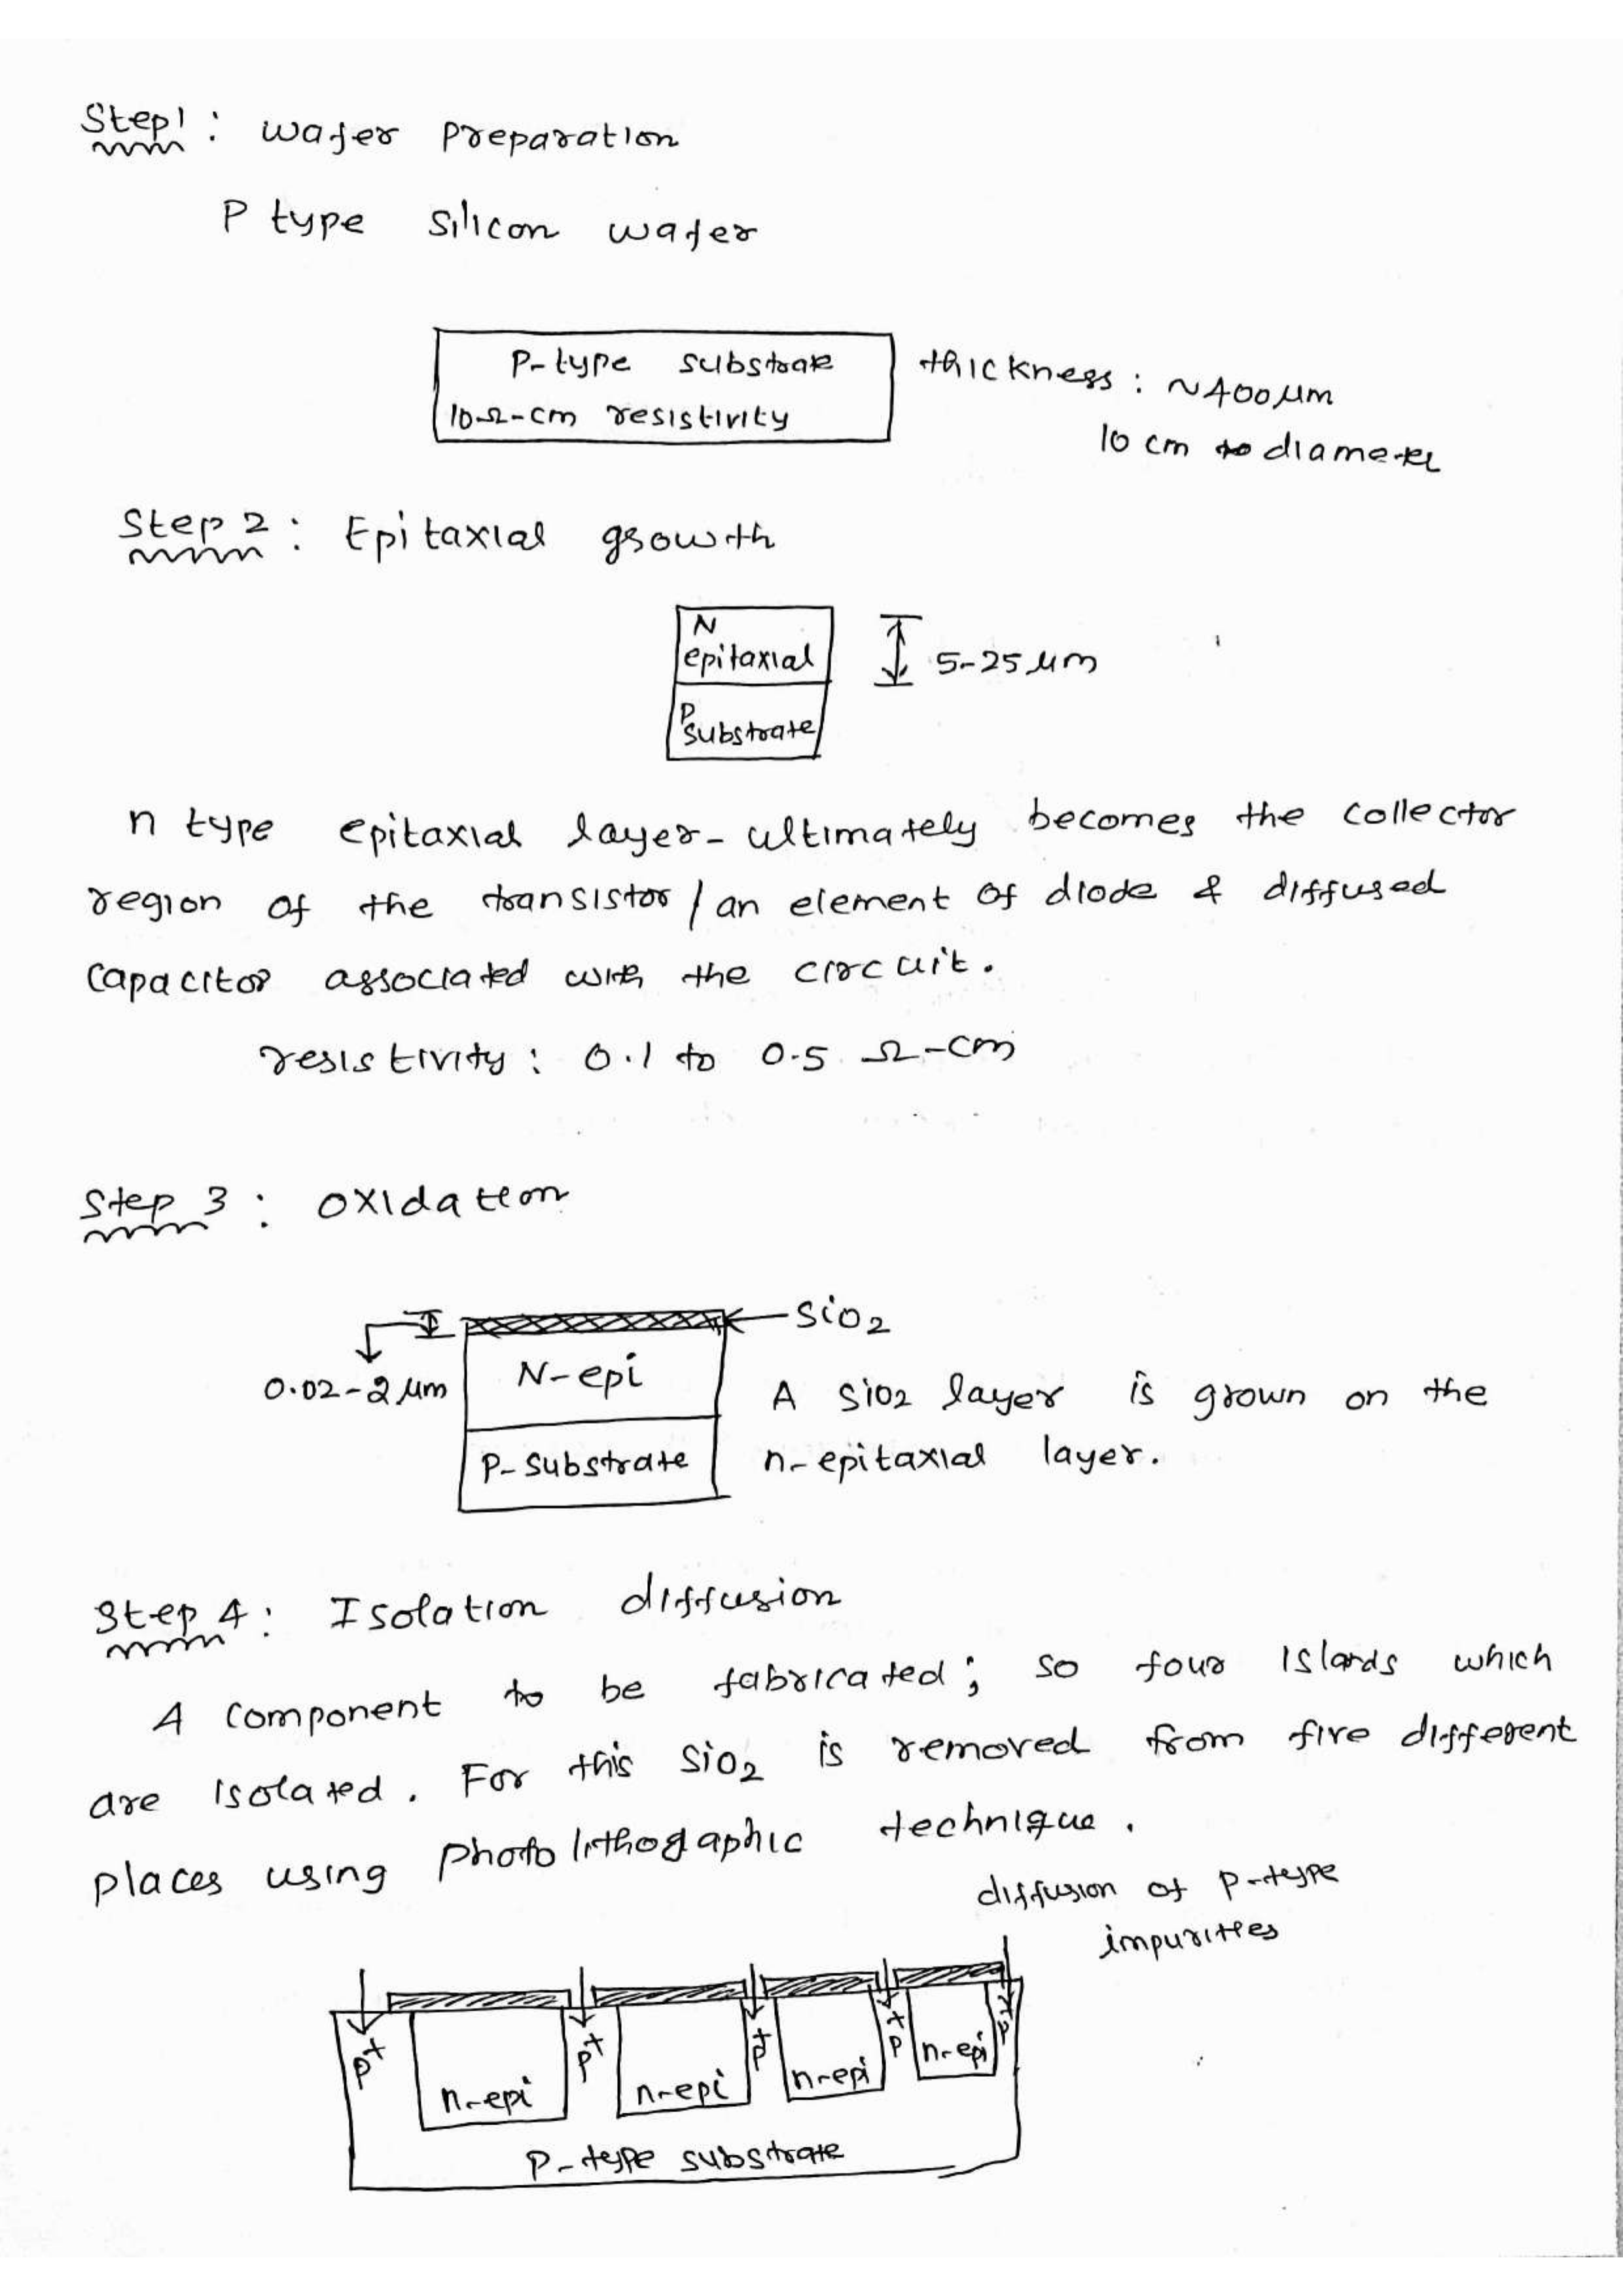 Step1 : wafer preparation
P type silicon wafer
P-type substrate
10-Ω-cm resistivity
thickness : ~400μm
10 cm to diameter
Step 2 : Epitaxial growth
N
epitaxial
5-25 μm
P
substrate
n type epitaxial layer - ultimately becomes the collector
region of the transistor / an element of diode & diffused
capacitor associated with the circuit.
resistivity : 0.1 to 0.5 Ω-cm
Step 3 : oxidation
SiO2
0.02-2 μm
N-epi
P-substrate
A SiO2 layer is grown on the
n-epitaxial layer.
Step 4 : Isolation diffusion
A component to be fabricated ; so four Islands which
are isolated. For this SiO2 is removed from five different
places using photolithographic technique.
diffusion of p-type
impurities
p+ n-epi p+ n-epi p+ n-epi p+ n-epi p+
P-type substrate